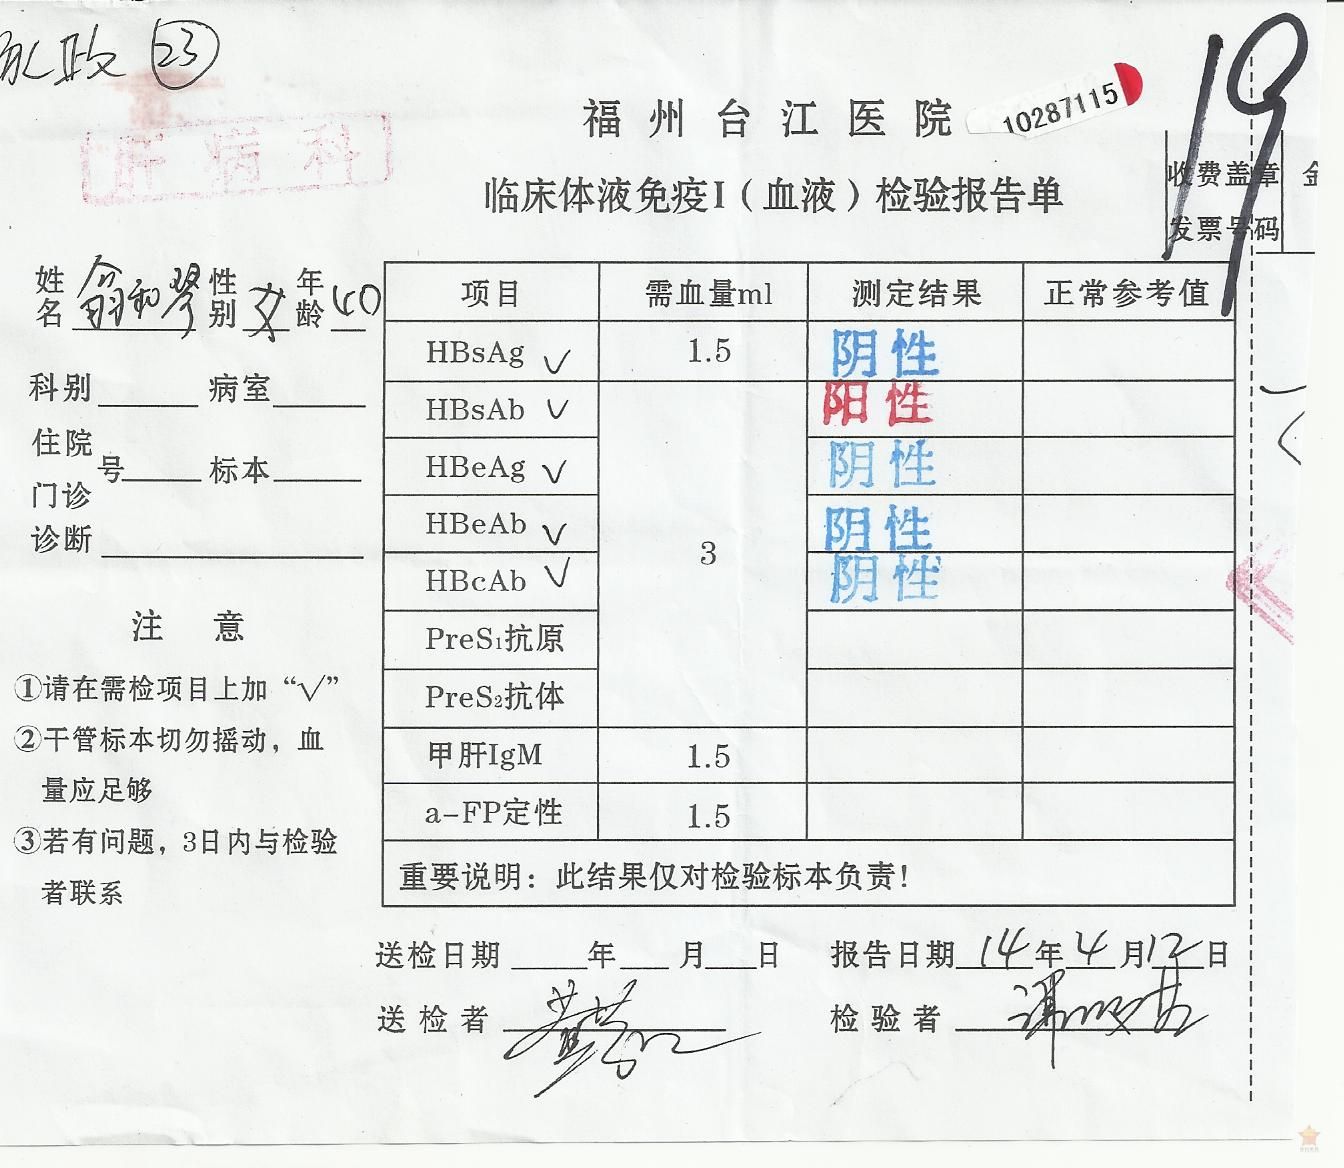 23
19
肝病科
10287115
福州台江医院
临床体液免疫I（血液）检验报告单
收费盖章 金
发票号码
姓名 翁和琴 性别 女 年龄 40
科别 病室
住院
号 标本
门诊
诊断
注 意
①请在需检项目上加“√”
②干管标本切勿摇动，血
量应足够
③若有问题，3日内与检验
者联系
项目 需血量ml 测定结果 正常参考值
HBsAg √ 1.5 阴性
HBsAb √ 阳性
HBeAg √ 阴性
HBeAb √ 3 阴性
HBcAb √ 阴性
PreS₁抗原
PreS₂抗体
甲肝IgM 1.5
a-FP定性 1.5
重要说明：此结果仅对检验标本负责！
送检日期 年 月 日 报告日期 14年4月12日
送检者 检验者